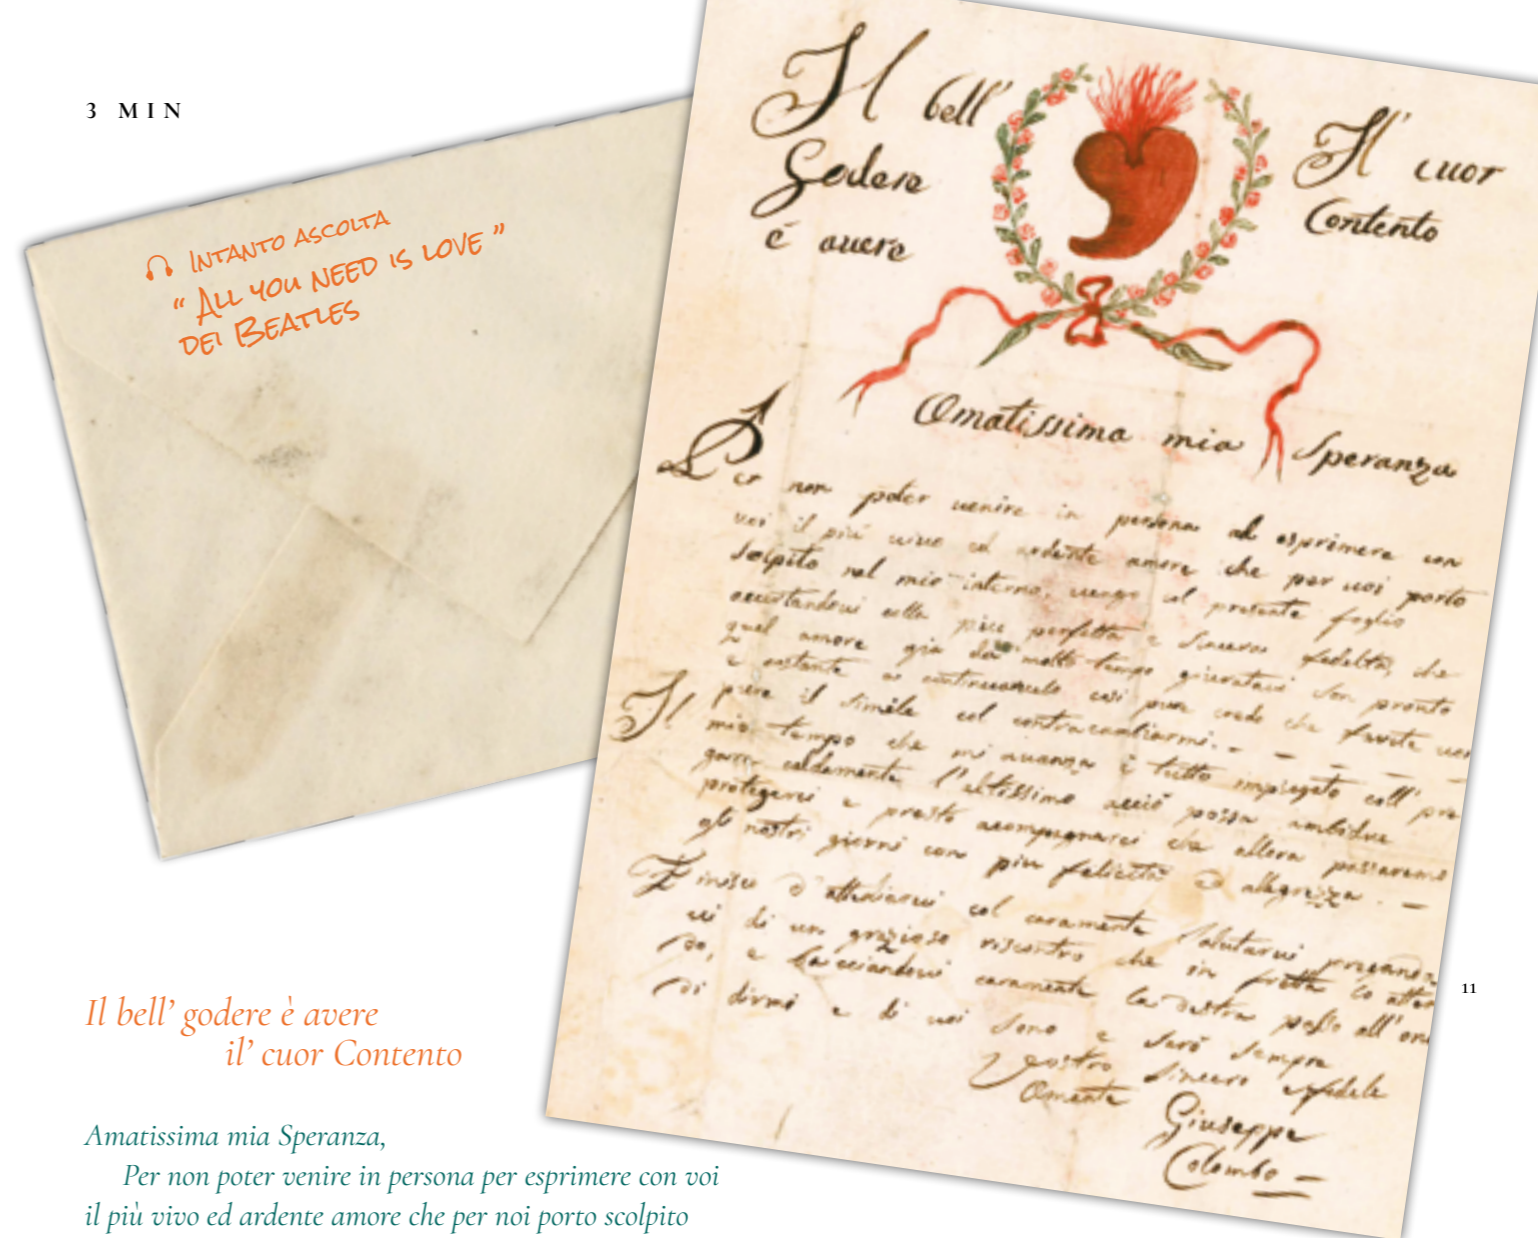 3 MIN
INTANTO ASCOLTA
“ALL YOU NEED IS LOVE”
DEI BEATLES
Il bell'
Godere
è avere
Il' cuor
Contento
Amatissima mia Speranza
Per non poter venire in persona ad esprimere con
voi il più vivo ed ardente amore che per voi porto
Scolpito nel mio interno, vengo col presente foglio
accertandovi colla più perfetta e sincera fedeltà, che
quel amore già da molto tempo giuratavi son pronto
e costante a continuarvelo così pure credo che farete voi
pure il simile col contracambiarmi. - - - - -
Il mio tempo che mi avanza è tutto impiegato coll' pre
gare caldamente l'altissimo acciò possa ambidue
protegerci e presto acompagnarci che allora passaremo
gli nostri giorni con più felicità ed allegrezza. -
Finisco d'attediarvi col caramente salutarvi pregando
vi di un grazioso riscontro che in fretta lo atten
do, e bacciandovi caramente la destra passo all'ono
di dirmi e di voi sono e sarò sempre
Vostro sincero e fedele
Amante
Giuseppe
Colombo
11
Il bell' godere è avere
il' cuor Contento
Amatissima mia Speranza,
Per non poter venire in persona per esprimere con voi
il più vivo ed ardente amore che per noi porto scolpito